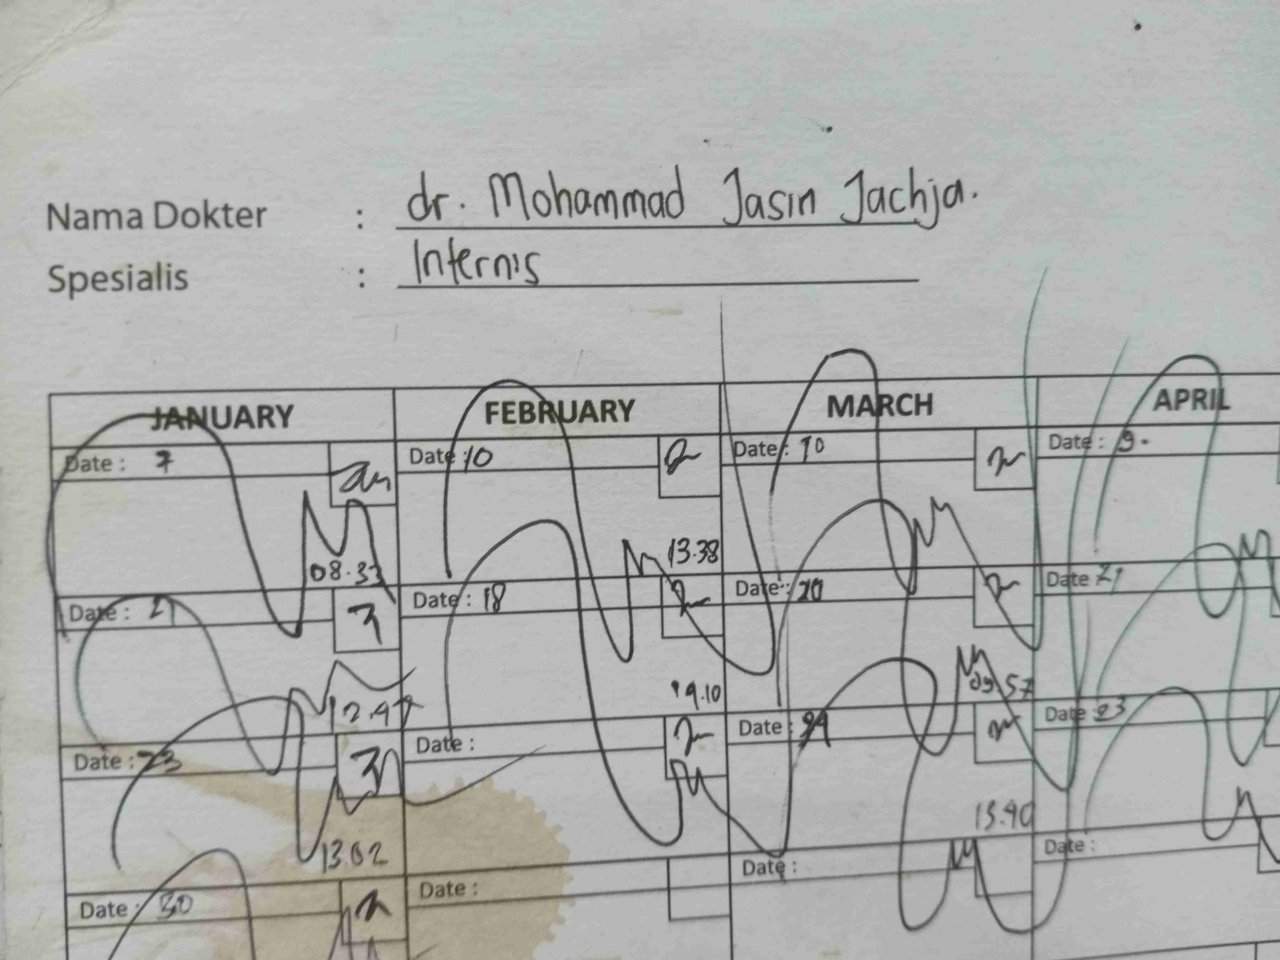 Nama Dokter : dr. Mohammad Jasin Jachja.
Spesialis : Internis
JANUARY FEBRUARY MARCH APRIL
Date : 7 Date : 10 Date : 10 Date : 9.
08.37 13.38
Date : 21 Date : 18 Date : 20 Date : 21
12.47 19.10 09.57
Date : 23 Date : Date : 24 Date : 23
13.02 15.40
Date : 30 Date : Date : Date :